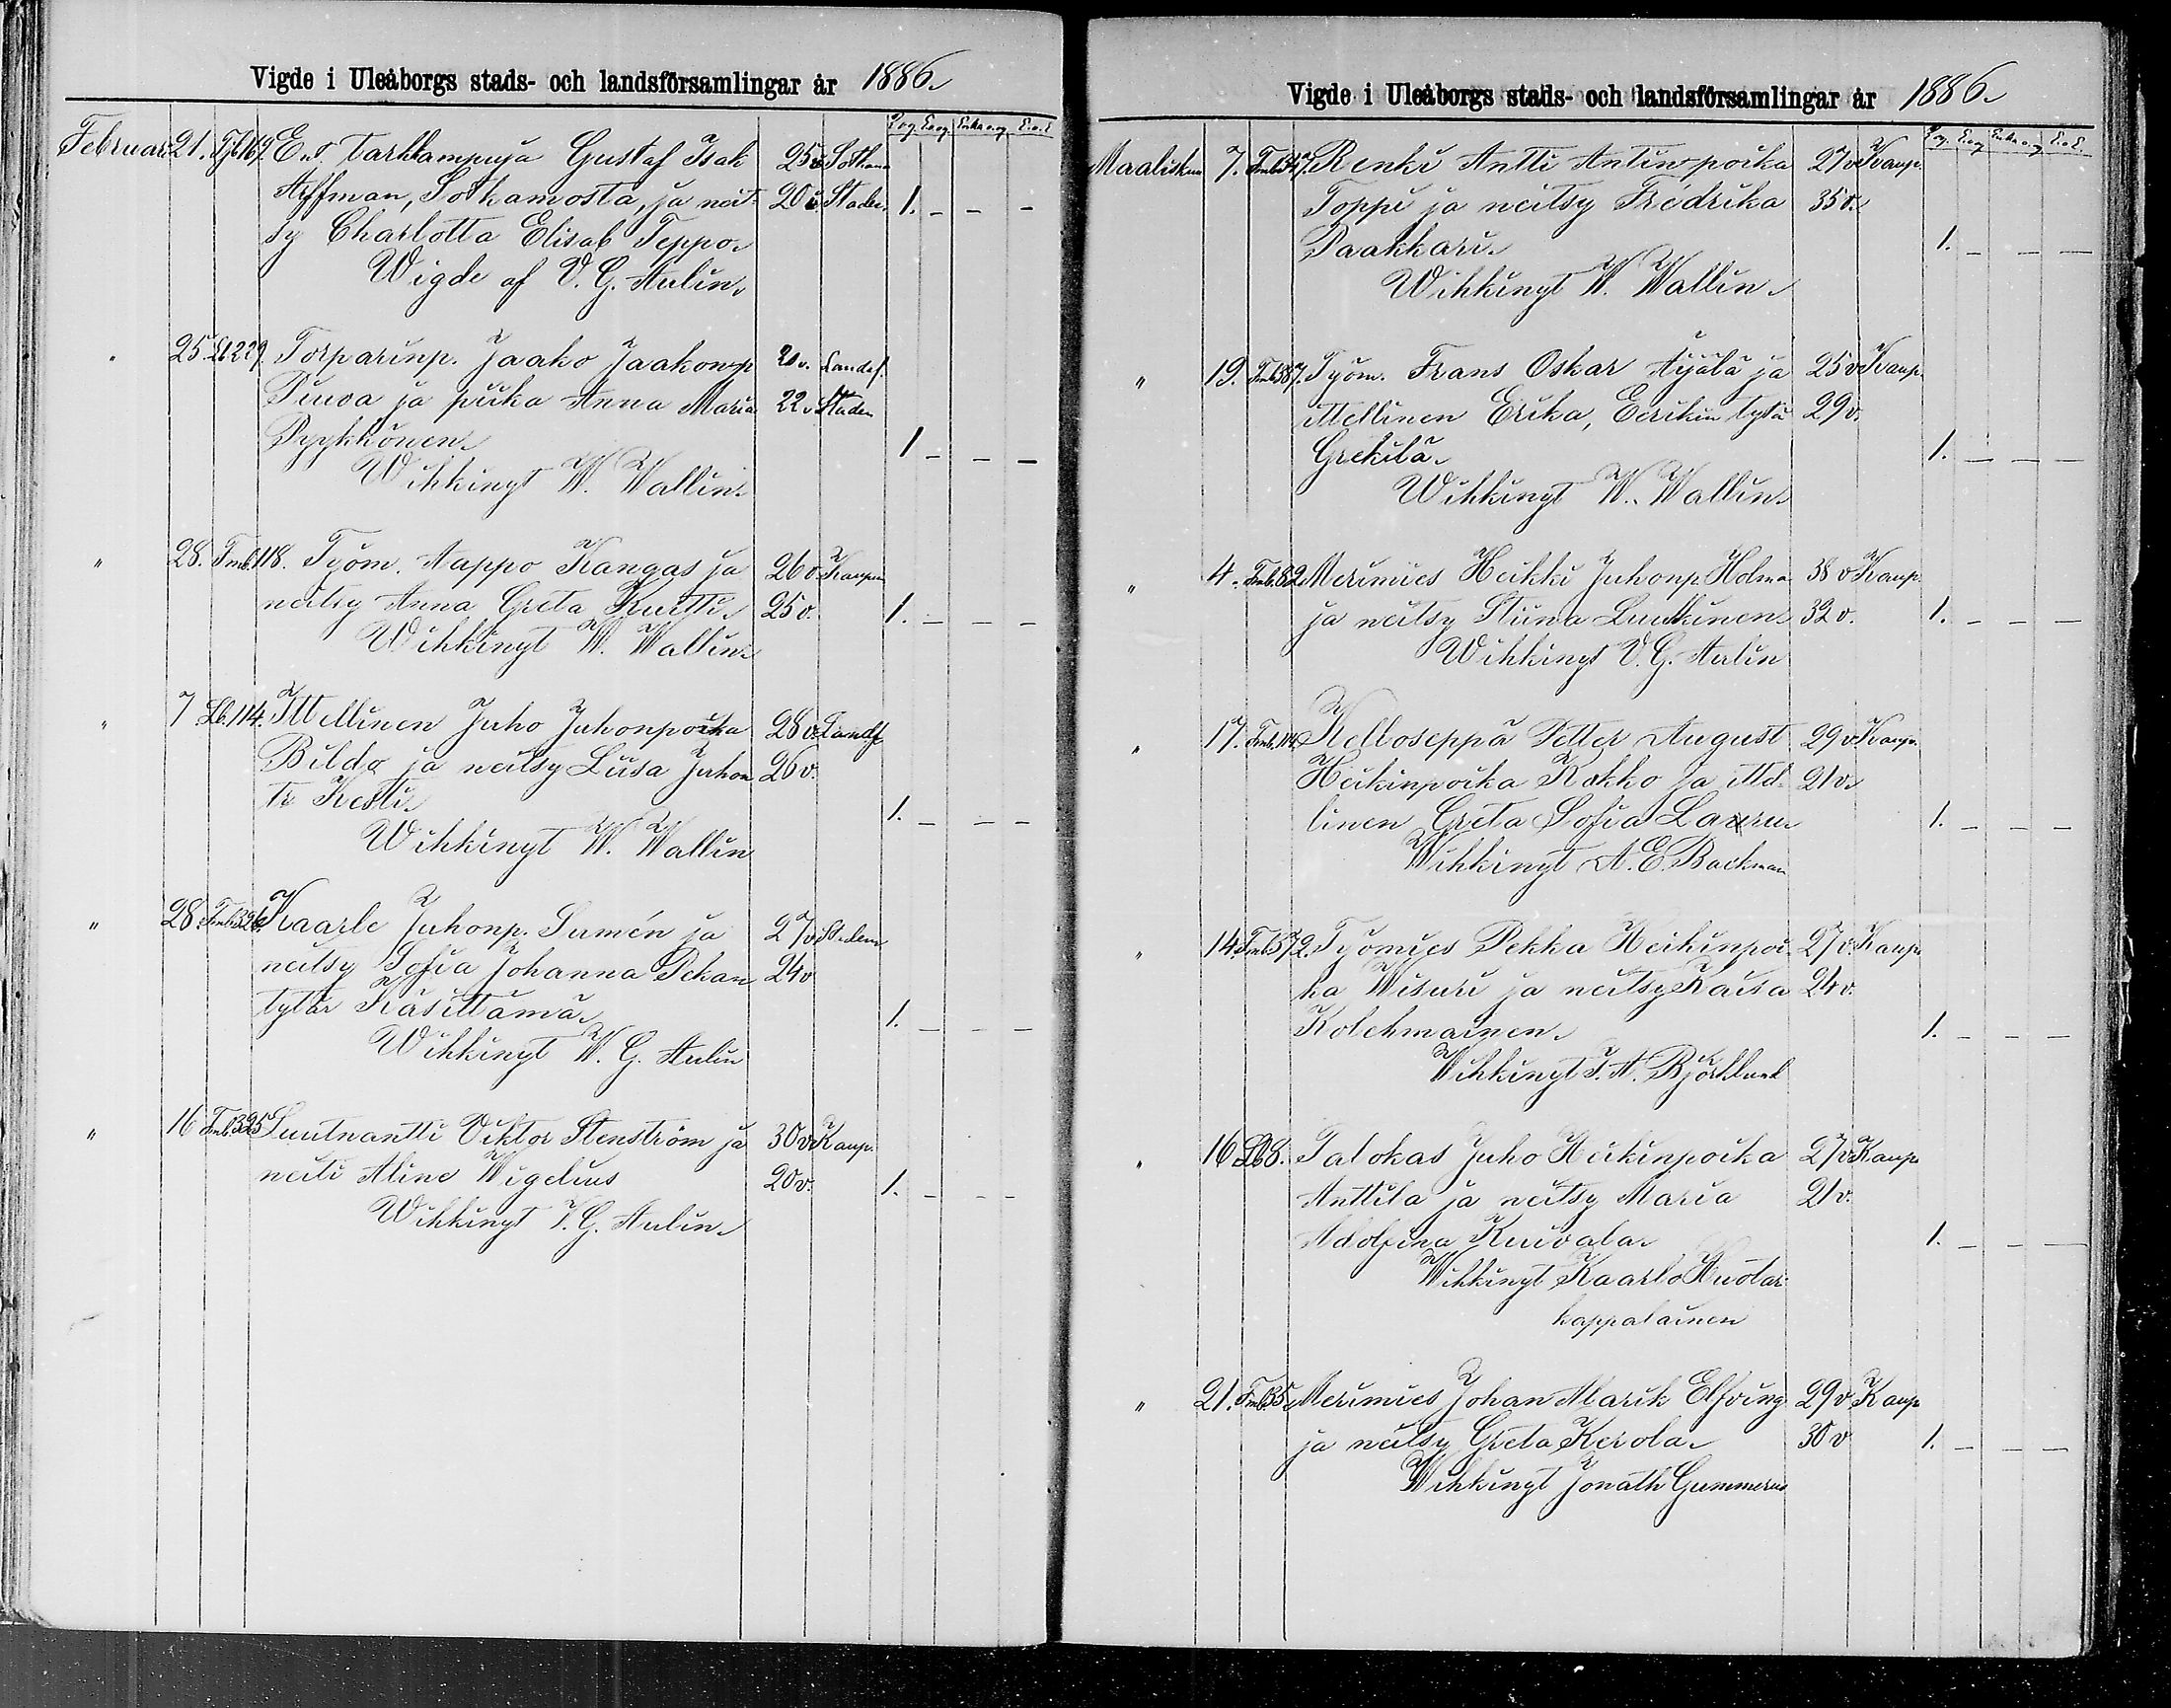 Vigde i Uleåborgs stads- och landsförsamlingar år 1886.
Februari 21. Tjb 169. Ent. tarkkampuja Gustaf Isak 25 v. Sotkamo
Affman, Sotkamosta, ja neit- 20 v. Staden 1. – – –
sy Charlotta Elisab Teppo.
Wigde af V. G. Aulin.
" 25. Lb 229. Torparinp. Jaako Jaakonp. v. Landsf.
ja piika Anna Maria 22 v. Staden
Pyykkönen. 1 – – –
Wihkinyt W. Wallin.
" 28. Tmb. 118. Työm. Aappo Kangas ja 26 v. Kaupun
neitsy Anna Greta Kurtti. 25 v. 1. – – –
Wihkinyt W. Wallin.
" 7 Lb. 114. Ittellinen Juho Juhonpoika 28 v. Landsf
Bildo ja neitsy Liisa Juhon 26 v.
tr Kesti. 1. – – –
Wihkinyt W. Wallin
" 28. Tmb. 326. Kaarle Juhonp. Sumén ja 27 v. Staden
neitsy Sofia Johanna Pekan 24 v
tytär Käsittämä. 1. – – –
Wihkinyt W. G. Aulin
" 16 Tmb. 325 Luutnantti Viktor Stenström ja 30 v. Kaup.
neiti Aline Wigelius 20 v. 1. – – –
Wihkinyt V. G. Aulin.
Vigde i Uleåborgs stads- och landsförsamlingar år 1886.
Maaliskuu 7. Renki Antti Antinpoika 27 v. Kaup.
Toppi ja neitsy Fredrika 35 v.
Paakkari. 1. – – –
Wihkinyt W. Wallin.
" 19. Tmb 587. Työm. Frans Oskar Äijälä ja 25 v. Kaup.
ittellinen Erika, Eerikin tytär 29 v.
Grekilä. 1. – – –
Wihkinyt W. Wallin.
" 4. Tmb. 82. Merimies Heikki Juhonp. Holma 38 v Kaup.
ja neitsy Stiina Luukinen 32 v. 1. – – –
Wihkinyt V. G. Aulin
" 17. Tmb. 114 Kelloseppä Petter August 29 v. Kaup.
Heikinpoika Kokko ja ittel- 21 v.
linen Greta Sofia Lauru. 1. – – –
Wihkinyt A. E. Backman
" 14. Tmb 572. Työmies Pekka Heikinpoi- 27 v. Kaup.
ka Wisuri ja neitsy Kaisa 24 v.
Kolehmainen. 1. – – –
Wihkinyt J. A. Björklund
" 16 Lb 8. Talokas Juho Heikinpoika 27 v. Kaup.
Anttila ja neitsy Maria 21 v.
Adolfina Kuivala. 1. – – –
Wihkinyt Kaarlo Huotari
kappalainen
" 21. Tmb. 35. Merimies Johan Alarik Elfving 29 v. Kaup
ja neitsy Greta Kerola. 30 v 1. – – –
Wihkinyt Jonath Gummerus